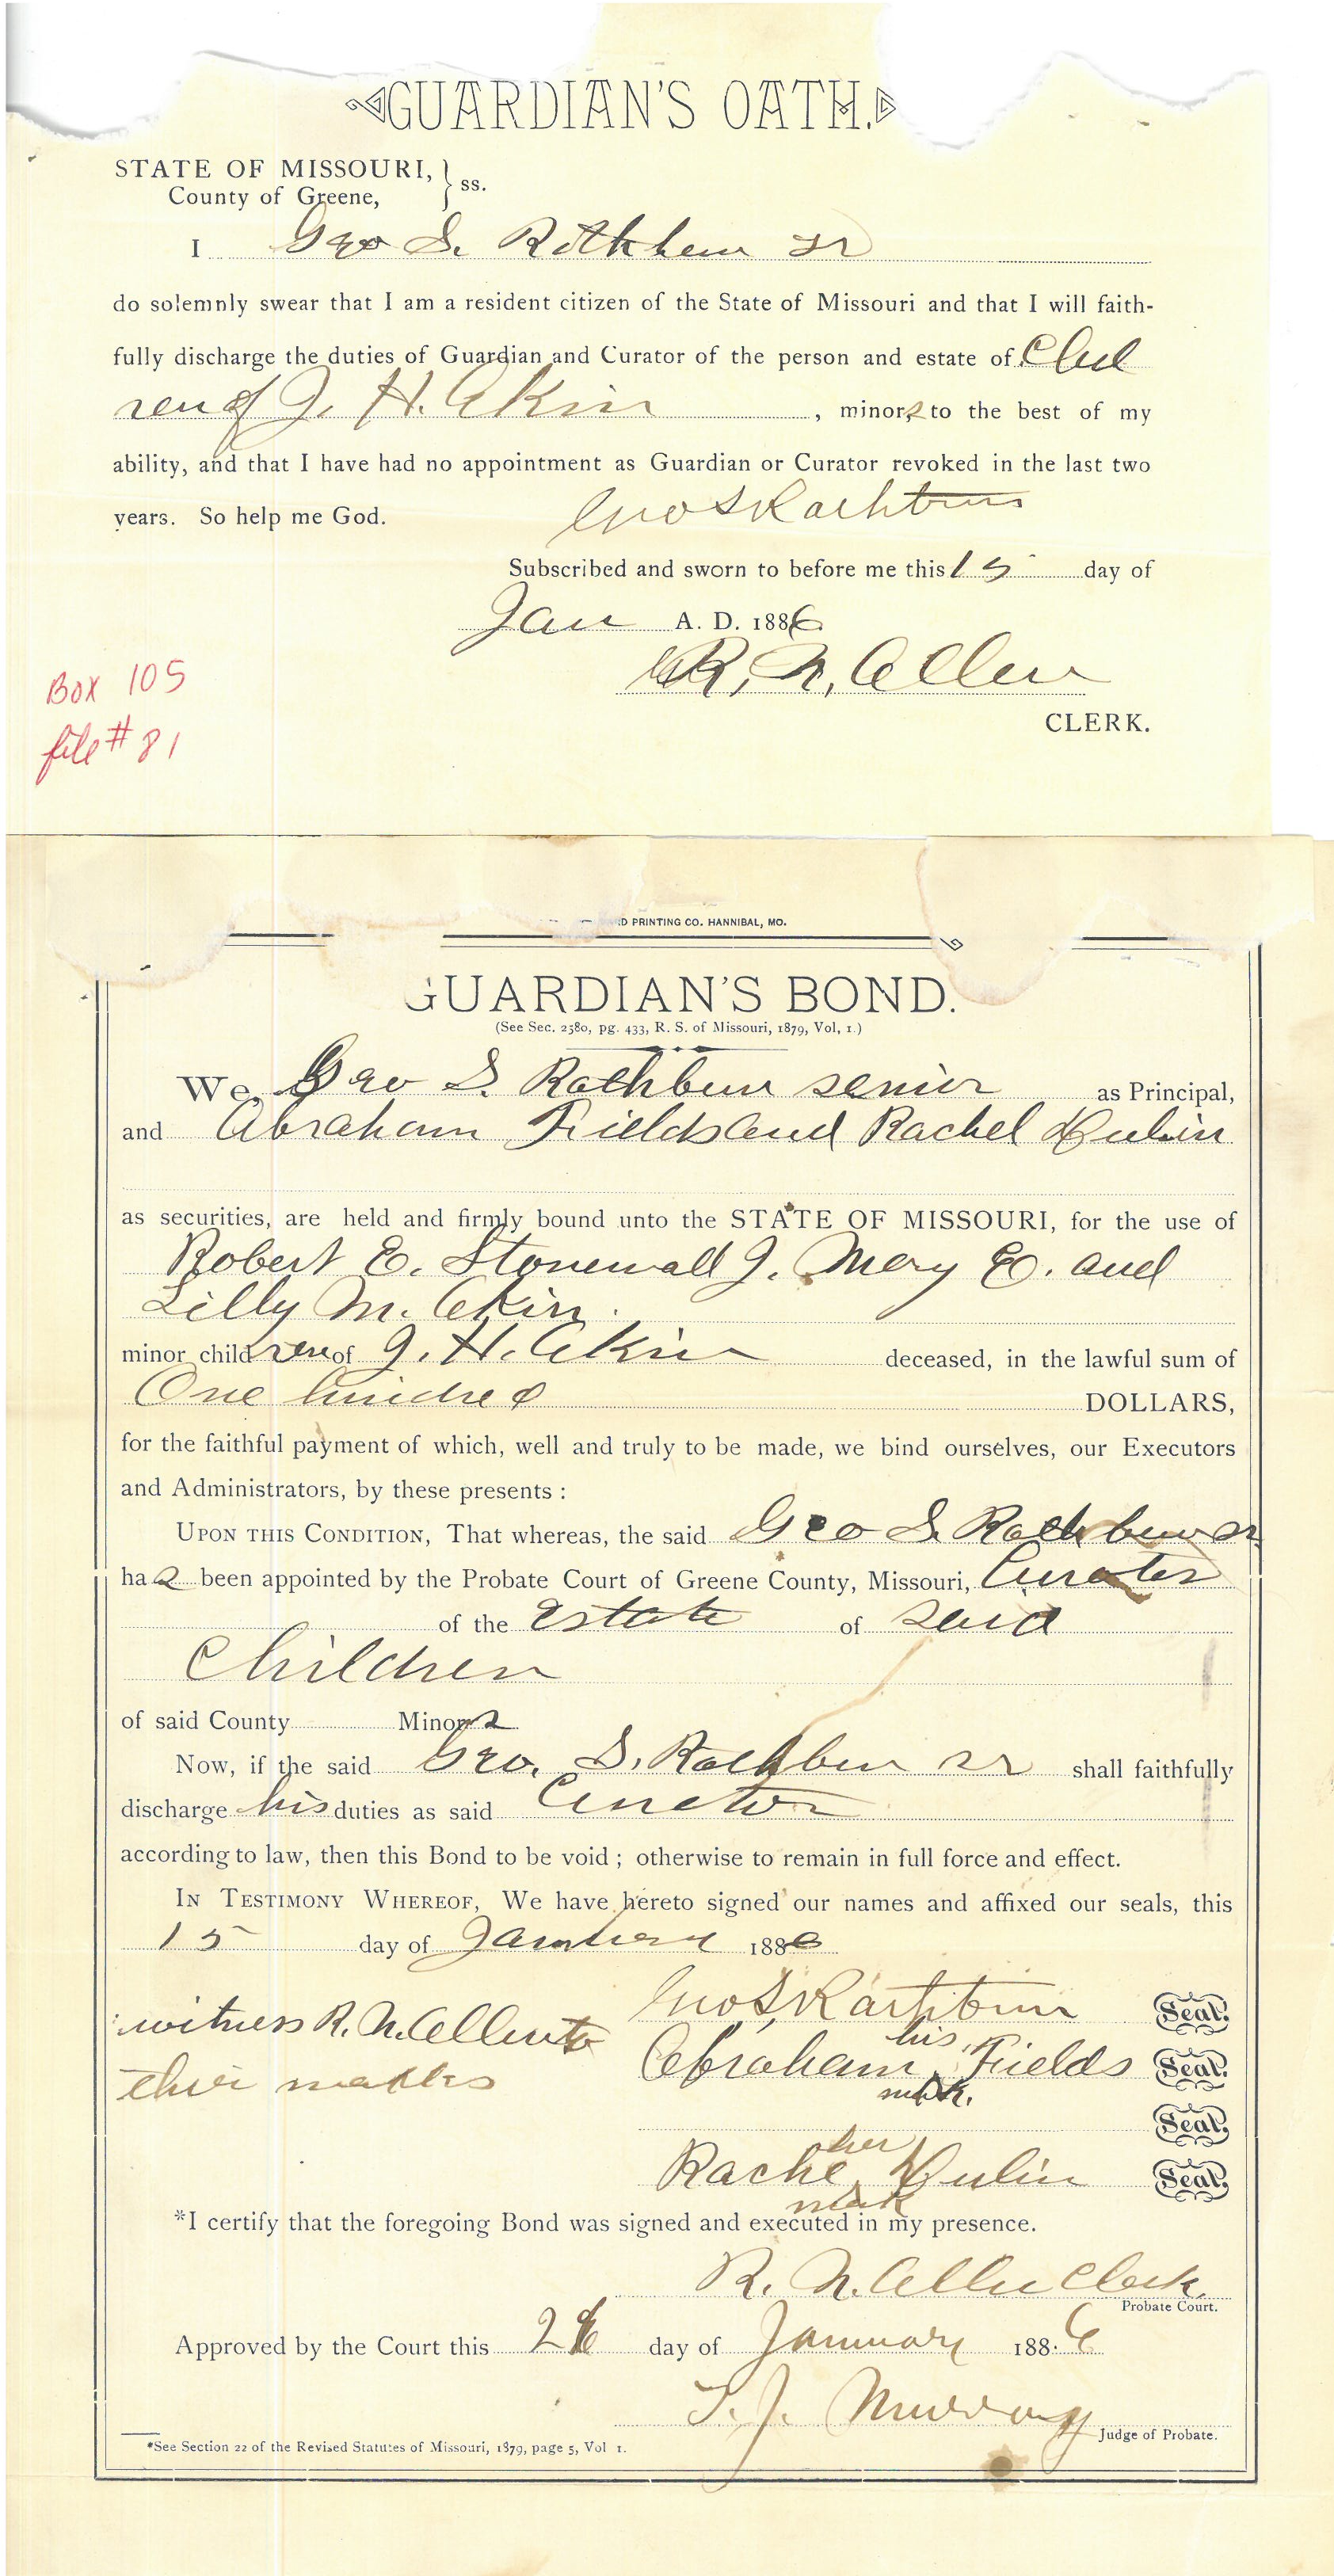 GUARDIAN'S OATH.
STATE OF MISSOURI,
County of Greene, } ss.
I Geo S. Rathbun Sr
do solemnly swear that I am a resident citizen of the State of Missouri and that I will faith-
fully discharge the duties of Guardian and Curator of the person and estate of Child
ren of J. H. Akin , minors to the best of my
ability, and that I have had no appointment as Guardian or Curator revoked in the last two
years. So help me God.
Geo S Rathbun
Subscribed and sworn to before me this 15 day of
Jan A. D. 1886
R. N. Allen
CLERK.
Box 105
file # 81
D PRINTING CO. HANNIBAL, MO.
GUARDIAN'S BOND.
(See Sec. 2580, pg. 433, R. S. of Missouri, 1879, Vol, 1.)
We, Geo S. Rathbun senior as Principal,
and Abraham Fields and Rachel Hulin
as securities, are held and firmly bound unto the STATE OF MISSOURI, for the use of
Robert E. Stonewall J. Mary E. and
Lilly M. Akin.
minor children of J. H. Akin deceased, in the lawful sum of
One hundred DOLLARS,
for the faithful payment of which, well and truly to be made, we bind ourselves, our Executors
and Administrators, by these presents :
UPON THIS CONDITION, That whereas, the said Geo S. Rathbun Sr
has been appointed by the Probate Court of Greene County, Missouri, Curator
of the Estate of said
Children
of said County Minors
Now, if the said Geo. S. Rathbun Sr shall faithfully
discharge his duties as said Curator
according to law, then this Bond to be void ; otherwise to remain in full force and effect.
IN TESTIMONY WHEREOF, We have hereto signed our names and affixed our seals, this
15 day of January 1886
witness R. N. Allen to
their marks
Geo S. Rathbun Seal.
his
Abraham Fields Seal.
mark.
Seal.
her
Rachel Hulin Seal.
mark
*I certify that the foregoing Bond was signed and executed in my presence.
R. N. Allen Clerk.
Probate Court.
Approved by the Court this day of January 1886
T. J. Murray
Judge of Probate.
*See Section 22 of the Revised Statutes of Missouri, 1879, page 5, Vol 1.